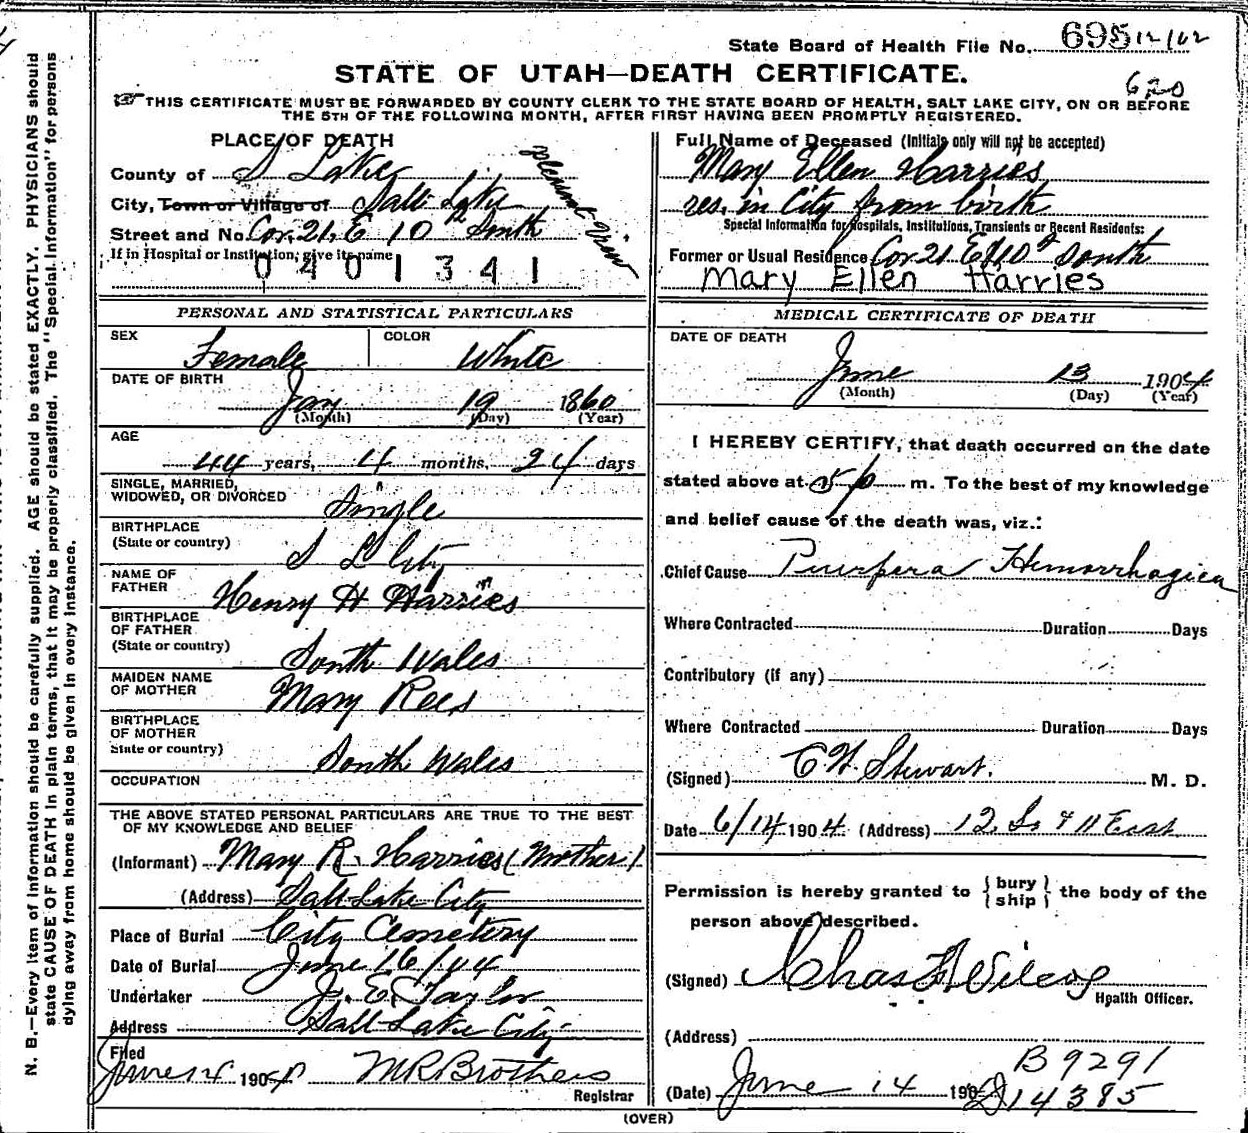 State Board of Health File No. 695 12/102
STATE OF UTAH—DEATH CERTIFICATE.
620
THIS CERTIFICATE MUST BE FORWARDED BY COUNTY CLERK TO THE STATE BOARD OF HEALTH, SALT LAKE CITY, ON OR BEFORE
THE 5TH OF THE FOLLOWING MONTH, AFTER FIRST HAVING BEEN PROMPTLY REGISTERED.
PLACE OF DEATH
County of S Lake
City, Town or Village of Salt Lake
Street and No. Cor. 21 E 10th South
If in Hospital or Institution, give its name
0401341
PERSONAL AND STATISTICAL PARTICULARS
SEX Female COLOR White
DATE OF BIRTH
Jany 19 1860
(Month) (Day) (Year)
AGE
44 years, 4 months, 24 days
SINGLE, MARRIED,
WIDOWED, OR DIVORCED Single
BIRTHPLACE
(State or country) S L City
NAME OF
FATHER Henry H Harries
BIRTHPLACE
OF FATHER
(State or country) South Wales
MAIDEN NAME
OF MOTHER Mary Rees
BIRTHPLACE
OF MOTHER
State or country) South Wales
OCCUPATION
THE ABOVE STATED PERSONAL PARTICULARS ARE TRUE TO THE BEST
OF MY KNOWLEDGE AND BELIEF
(Informant) Mary R. Harries (Mother)
(Address) Salt Lake City
Place of Burial City Cemetery
Date of Burial June 16/04
Undertaker J. E. Taylor
Address Salt Lake City
Filed
June 14 1904 M R Brothers
Registrar
Full Name of Deceased (Initials only will not be accepted)
Mary Ellen Harries
res. in City from birth
Special Information for Hospitals, Institutions, Transients or Recent Residents:
Former or Usual Residence Cor 21 E & 10th South
Mary Ellen Harries
MEDICAL CERTIFICATE OF DEATH
DATE OF DEATH
June 13 1904
(Month) (Day) (Year)
I HEREBY CERTIFY, that death occurred on the date
stated above at 5 p m. To the best of my knowledge
and belief cause of the death was, viz.:
Chief Cause Puerpera Hemorrhagica
Where Contracted Duration Days
Contributory (if any)
Where Contracted Duration Days
(Signed) C W. Stewart. M. D.
Date 6/14 1904. (Address) 12 So & 11 East
Permission is hereby granted to { bury } the body of the
{ ship }
person above described.
(Signed) Chas F Wilcox
Health Officer.
(Address)
B 9291
(Date) June 14 190 D 14385
(OVER)
N. B.—Every item of information should be carefully supplied. AGE should be stated EXACTLY. PHYSICIANS should
state CAUSE OF DEATH in plain terms, that it may be properly classified. The "Special Information" for persons
dying away from home should be given in every instance.